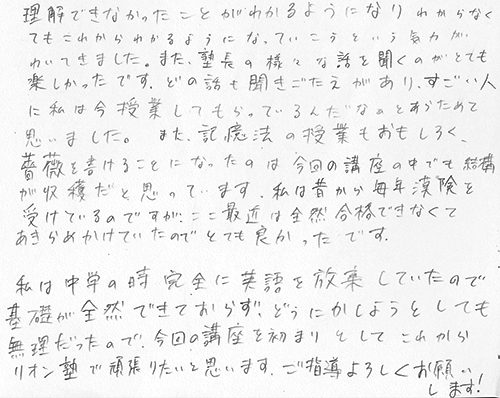 理解できなかったことがわかるようになりわからなく
てもこれからわかるようになっていこうという気力が
わいてきました。また、塾長の様々な話を聞くのがとても
楽しかったです。どの話も聞きごたえがあり、すごい人
に私は今授業してもらっているんだなぁとあらためて
思いました。 また、記憶法の授業もおもしろく、
薔薇を書けることになったのは今回の講座の中でも結構
が収穫だと思っています。私は昔から毎年漢検を
受けているのですが、ここ最近は全然合格できなくて
あきらめかけていたのでとても良かったです。
私は中学の時完全に英語を放棄していたので
基礎が全然できておらず、どうにかしようとしても
無理だったので、今回の講座を初まりとしてこれから
リオン塾で頑張りたいと思います。ご指導よろしくお願い
します!